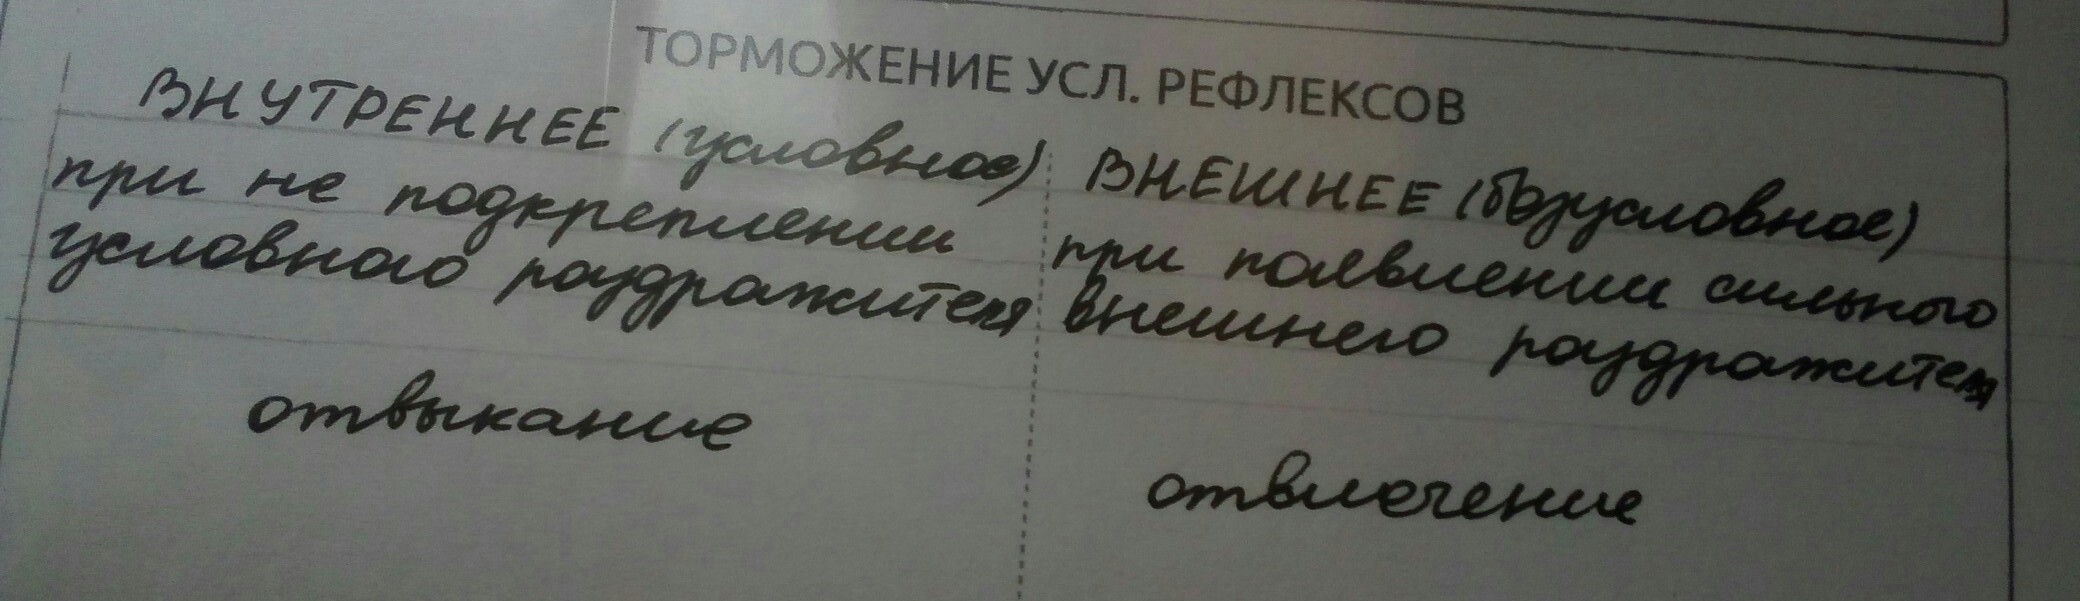 ТОРМОЖЕНИЕ УСЛ. РЕФЛЕКСОВ
ВНУТРЕННЕЕ (условное)
при не подкреплении
условного раздражителя
отвыкание
ВНЕШНЕЕ (безусловное)
при появлении сильного
внешнего раздражителя
отвлечение